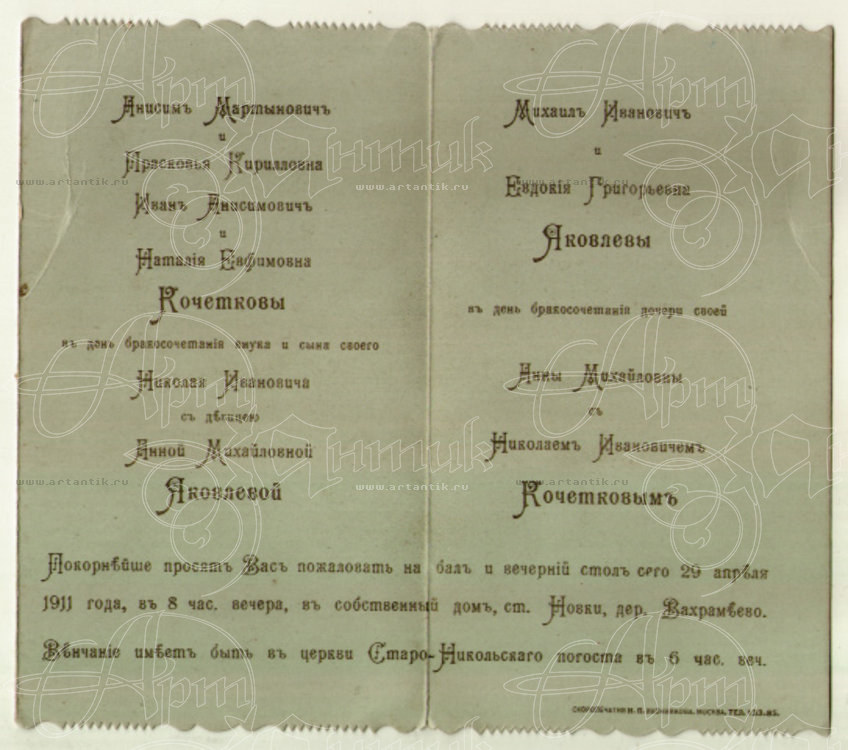 Анисимъ Мартыновичъ
и
Прасковья Кирилловна
Иванъ Анисимовичъ
и
Наталія Евфимовна
Кочетковы
въ день бракосочетанія внука и сына своего
Николая Ивановича
съ дѣвицею
Анной Михайловной
Яковлевой
Михаилъ Ивановичъ
и
Евдокія Григорьевна
Яковлевы
въ день бракосочетанія дочери своей
Анны Михайловны
съ
Николаемъ Ивановичемъ
Кочетковымъ
Покорнѣйше просятъ Васъ пожаловать на балъ и вечерній столъ сего 29 апрѣля
1911 года, въ 8 час. вечера, въ собственный домъ, ст. Новки, дер. Вахрамѣево.
Вѣнчаніе имѣетъ быть въ церкви Старо-Никольскаго погоста въ 6 час. веч.
СКОРОПЕЧАТНЯ МОСКВА. ТЕЛ.
Арт Антик
www.artantik.ru
www.artantik.ru
www.artantik.ru
www.artantik.ru